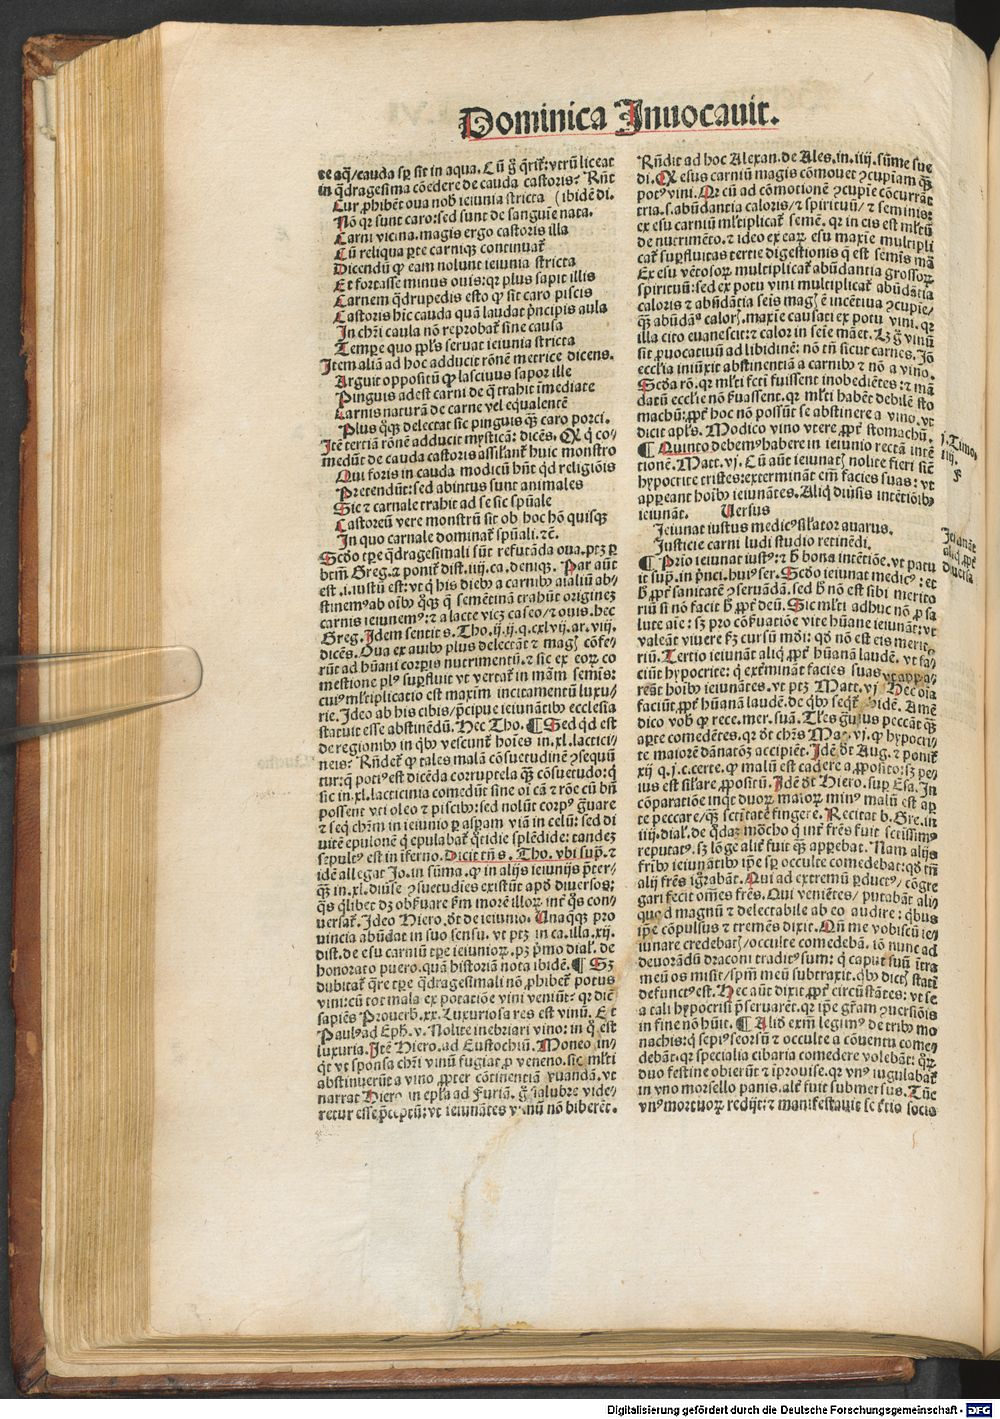 Dominica Inuocauit.
te aq̃/cauda sꝑ sit in aqua. Cũ g̊ q̃rit᷑: vtrũ liceat
in q̃dragesima cõedere de cauda castoris? Rñt
Cur ꝓhibẽt oua nob̃ ieiunia stricta (ibidẽ di.
Nõ qꝛ sunt caro: sed sunt de sanguĩe nata.
Carni vicina. magis ergo castoris illa
Cũ reliqua ꝑte carniqꝫ continuat᷑
Dicendũ ꝙ eam nolunt ieiunia stricta
Et fortasse minus ouis: qꝛ plus sapit illis
Carnem q̃drupedis esto ꝙ sit caro piscis
Castoris hic cauda quã laudat p̃ncipis aula
In chr̃i caula nõ reprobat᷑ sine causa
Tempe quo ppl̃s seruat ieiunia stricta
Item aliã ad hoc adducit rõnẽ metrice dicens.
Arguit oppositũ ꝙ lasciuus sapor ille
Pinguis adest carni de q̃ trahit ĩmediate
Carnis naturã de carne vel equalentẽ
Plus q̃qꝫ delectat sic pinguis q̃ꝫ caro porci.
Itẽ tertiã rõnẽ adducit mysticã: dicẽs. Qꝛ q̃ co-
medũt de cauda castoris assil̃ant᷑ huic monstro
Qui foris in cauda modicũ hñt qd̃ religiõis
Pretendũt: sed abintus sunt animales
Sic ⁊ carnale trahit ad se sic spũale
Castoreũ vere monstrũ sit ob hoc hõ quisqꝫ
In quo carnale dominat᷑ spũali. ⁊c̃.
Scd̃o tꝑe q̃dragesimali sũt refutãda oua. ptꝫ ꝑ
btm̃ Greg. ⁊ ponit᷑ dist. iiij. ca. deniqꝫ. Par aũt
est .i. iustũ est: vt q̃ his dieb⁹ a carnib⁹ aialiũ ab-
stinem⁹ ab oĩb⁹ q̃qꝫ q̃ semẽtinã trahũt origineꝫ
carnis ieiunem⁹: ⁊ a lacte vicꝫ caseo/⁊ ouis. hec
Greg. Idem sentit s. Tho. ij. ij. q. cxlvij. ar. viij.
dicẽs. Oua ex auib⁹ plus delectãt ⁊ mag̃ cõfe-
rũt ad hũani corꝑis nutrimentũ. ⁊ sic ex eoꝝ co
mestione pl⁹ suꝑfluit vt vertat᷑ in mãm semis:
cui⁹ ml̃tiplicatio est maxim̃ incitamentũ luxu-
rie. Ideo ab his cibis/p̃cipue ieiunãtib⁹ ecclesia
statuit esse abstinẽdũ. Hec Tho. ¶ Sed qd̃ est
de regionib⁹ in qb⁹ vescunt᷑ hoĩes in .xl. lactici-
neis? Rñdet᷑ ꝙ tales malã cõsuetudinẽ ꝯsequũ
tur: q̃ poti⁹ est dicẽda corruptela q̃ꝫ cõsuetudo: q̃
sic in .xl. lacticinia comedũt sine oĩ cã ⁊ rõe cũ bñ
possent vti oleo ⁊ piscib⁹: sed nolũt corp⁹ g̃uare
⁊ seq̃ chr̃m in ieiunio ꝑ asꝑam viã in celũ: sed di
uitẽ epulonẽ q̃ epulabat᷑ q̃tidie splẽdide: tandeꝫ
sepult⁹ est in ĩferno. Dicit tñ s. Tho. vbi suꝑ. ⁊
idẽ allegat Jo. in sũma. ꝙ in alijs ieiunijs p̃ter-
q̃ꝫ in .xl. diũse ꝯsuetudies existũt apđ diuersos:
q̃s q̃libet dꝫ obs̃uare s̃m morẽ illoꝝ int᷑ q̃s con-
uersat᷑. Ideo Hiero. d̃t de ieiunio. Unaq̃qꝫ pro
uincia abũdat in suo sensu. vt ptꝫ in ca. illa. xij.
dist. de esu carniũ tꝑe ieiunioꝝ. pꝫ p̃mo dial̃. de
honorato puero. quã historiã nota ibidẽ. ¶ Sꝫ
dubitat᷑ q̃re tꝑe q̃dragesimali nõ ꝓhibet᷑ potus
vini: cũ tot mala ex potatiõe vini veniũt? qꝛ dic̃
sapiẽs Prouerb̃. xx. Luxuriosa res est vinũ. Et
Paul⁹ ad Eph̃. v. Nolite inebriari vino: in q̃ est
luxuria. Itẽ Hiero. ad Eustochiũ. Moneo in-
q̃t vt sponsa chr̃i vinũ fugiat ꝓ veneno. sic ml̃ti
abstinuerũt a vino ꝓpter cõtinentiã ẽuandã. vt
narrat Hiero. in ep̃la ad Furiã. g̊ salubre vide-
retur esse p̃ceptũ: vt ieiunãtes vinũ nõ biberẽt.
Rñdit ad hoc Alexan. de Ales. in. iiij. sũme sue
di. Qꝛ esus carniũ magis cõmouet ꝯcupiam q̃ꝫ
pot⁹ vini. Qꝛ cũ ad cõmotionẽ ꝯcupie cõcurrãt
tria. s. abũdantia caloris/⁊ spirituũ/⁊ seminis:
ex esu carniũ ml̃tiplicat᷑ semẽ. qꝛ in eis est ml̃tũ
de nutrimẽto. ⁊ ideo ex eaꝝ esu maxie multipli
cat᷑ suꝑfluitas tertie digestionis q̃ est semis mã
Ex esu vẽtosoꝝ multiplicat᷑ abũdantia grossoꝝ
spirituũ: sed ex potu vini multiplicat᷑ abũdãtia
caloris ⁊ abũdãtia seis mag̃ ẽ incẽtiua ꝯcupie/
q̃ꝫ abũdãª calor̃. maxie causati ex potu vini. qꝛ
illa cito euanescit: ⁊ calor in seĩe mãet. Lꝫ g̊ vinũ
sit ꝓuocatiuũ ad libidinẽ: nõ tñ sicut carnes. Jõ
eccl̃ia iniũxit abstinentiã a carnib⁹ ⁊ nõ a vino.
Scd̃a rõ. qꝛ ml̃ti fcti fuissent inobediẽtes: ⁊ mã
datũ eccl̃ie nõ s̃uassent. qꝛ ml̃ti habẽt debilẽ sto
machũ: ꝓpt᷑ hoc nõ possũt se abstinere a vino. vt
dicit apl̃s. Modico vino vtere ꝓpt᷑ stomachũ.
¶ Quinto debem⁹ habere in ieiunio rectã intẽ
tionẽ. Matt. vj. Cũ aũt ieiunat̃ nolite fieri sic̃
hypocrite tristes: exterminãt em̃ facies suas: vt
appeant hoĩb⁹ ieiunãtes. Aliq̃ diũsis intẽtiõib⁹
ieiunãt. Uersus
Ieiunat iustus medic⁹ sil̃ator auarus.
Iusticie carni ludi studio retinẽdi.
¶ Prio ieiunat iust⁹: ⁊ b̃ bona intẽtiõe. vt patu
it suꝑ. in p̃nci. hui⁹ ser. Scd̃o ieiunat medic⁹: et
b̃ ꝓpt᷑ sanitatẽ ꝯseruãdã. sed b̃ nõ est sibi merito
riũ si nõ facit b̃ ꝓpt᷑ deũ. Sic ml̃ti adhuc nõ ꝓ sa
lute aĩe: sꝫ pro cõs̃uatiõe vite hũane ieiunãt: vt
valeãt viuere s̃ꝫ cursũ mõi: qd̃ nõ est eis merito
riũ. Tertio ieiunãt aliq̃ ꝓpt᷑ hũanã laudẽ. vt fa-
ciũt hypocrite: q̃ ext᷑minãt facies suas vt appa-
reãt hoĩb⁹ ieiunãtes. vt ptꝫ Matt. vj. Hec oĩa
faciũt ꝓpt᷑ hũanã laudẽ. de qb⁹ seqt᷑ ibidẽ. Amẽ
dico vob̃ ꝙ rece. mer. suã. Tl̃es g̃uius peccãt q̃ꝫ
aꝑte comedẽtes. qꝛ d̃t chr̃s Mat. vj. ꝙ hypocri-
te maiorẽ dãnatõꝫ accipiẽt. Idẽ d̃t Aug. ⁊ ponit᷑
xij q. j. c. certe. ꝙ malũ est cadere a ꝓposito: sꝫ pe-
ius est sil̃are ꝓpositũ. Idẽ d̃t Hiero. suꝑ Esa. In
cõparatiõe inq̃t duoꝝ maioꝝ min⁹ malũ est aꝑ
te peccare/q̃ꝫ sctĩtatẽ fingere. Recitat b. Gre. in
iiij. dial̃. de q̃daꝫ mõcho q̃ int᷑ fr̃es fuit sctissim⁹
reputat⁹. sꝫ lõge alit᷑ fuit q̃ꝫ apꝑebat. Nam alijs
frib⁹ ieiunãtib⁹ ip̃e sꝑ occulte comedebat: qd̃ tñ
alij fr̃es ig̃rabãt. Qui ad extremũ ꝑduct⁹/cõgre
gari fecit om̃es fr̃es. Qui veniẽtes/putabãt ali-
quod magnũ ⁊ delectabile ab eo audire: q̃bus
ip̃e cõpulsus ⁊ tremẽs dixit. Qñ me vobiscũ iei
iunare credebat̃/occulte comedebã. iõ nunc ad
deuorãdũ draconi tradit⁹ sum: q̃ caput suũ ĩtra
meũ os misit/spm̃ meũ subtraxit. qb⁹ dict̃ stati
defunct⁹ est. Hec aũt dixit ꝓpt᷑ circũstãtes: vt se
a tali hypocrisi p̃seruarẽt. qꝛ ip̃e gr̃am ꝯuersiõis
in fine nõ hũit. ¶ Aliđ exm̃ legim⁹ de trib⁹ mo
nachis: q̃ sepi⁹ seorsũ ⁊ occulte a cõuentu come-
debãt. qꝛ specialia cibaria comedere volebãt: q̃ꝝ
duo festine obierũt ⁊ ĩprouise. qꝛ vn⁹ iugulabat᷑
in vno morsello panis. alt᷑ fuit submersus. Tũc
vn⁹ mortuoꝝ redijt: ⁊ manifestauit se t̃tio socio
j. Timo.
iiij.
Ieiunãt
aliq̃ ꝓpt᷑
diuersa
Digitalisierung gefördert durch die Deutsche Forschungsgemeinschaft - DFG